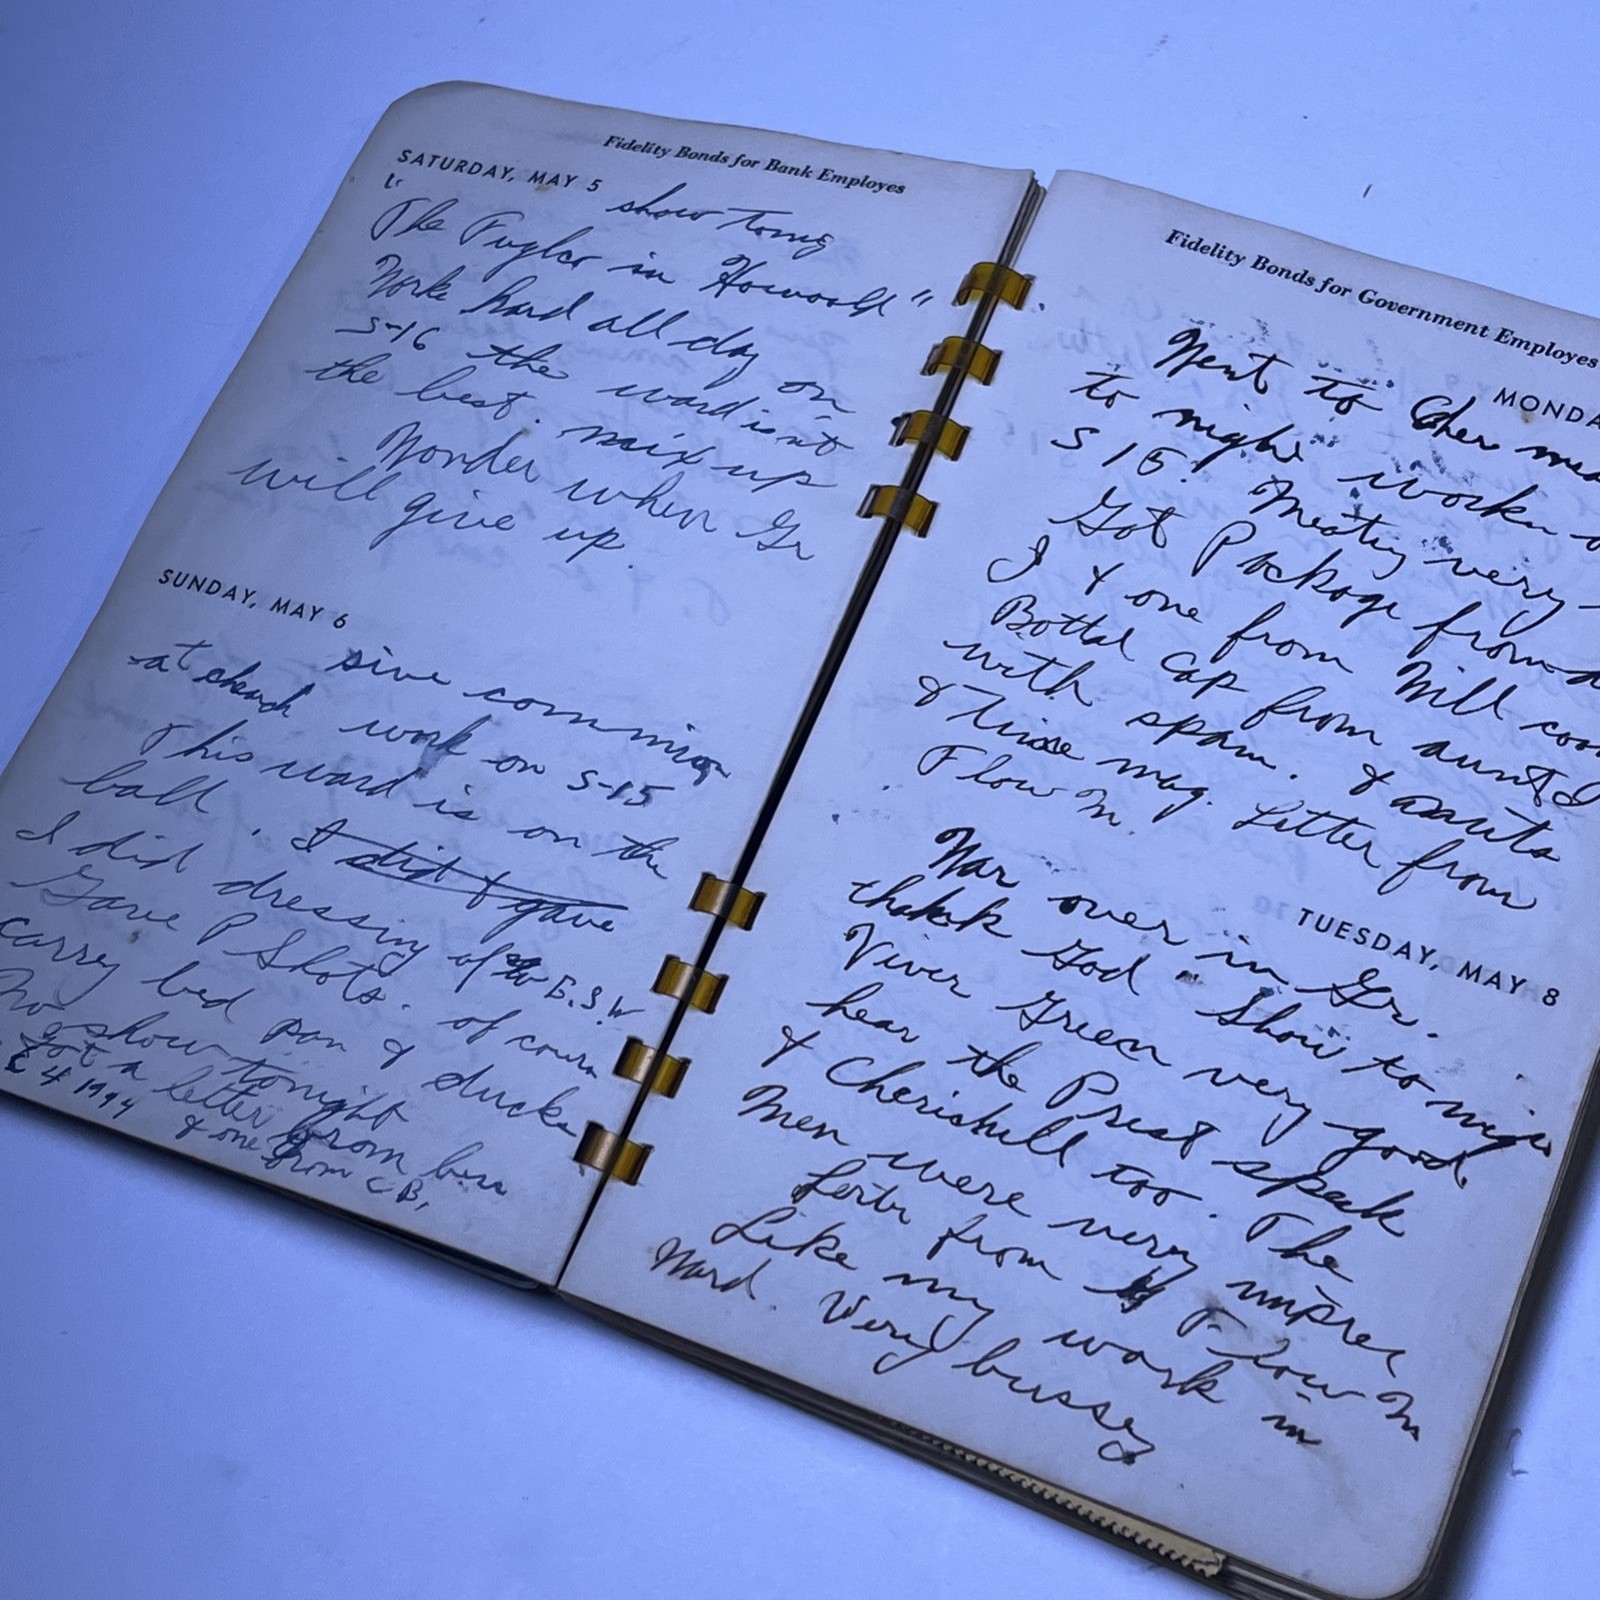 Fidelity Bonds for Bank Employes
SATURDAY, MAY 5
show tonig
"The Fugler in Howoold"
Worke hard all day on
S-16 the ward isn't
the best. mix up
Wonder when Gr
will give up.
SUNDAY, MAY 6
sive commion
at church work on S-15
This ward is on the
ball. I did & gave
I did dressing of E.S.W.
Gave P Shots. of cours
carry bed pan & ducks
No show tonight
got a letter from
4 1944 & one from C B,
Fidelity Bonds for Government Employes
MONDA
Went to Cher
to night work
S 15. Meating very
Got Package from
I & one from Will
Bottal Cap from aunt
with spam. & aunts
& time mag. Letter from
Flow M.
TUESDAY, MAY 8
War over in Gr.
thank God. Show to nigh
Viver Green very good.
hear the Prest speak
& Cherishill too. The
men were very impres
from F low M
Like my work in
Ward. Very bussey